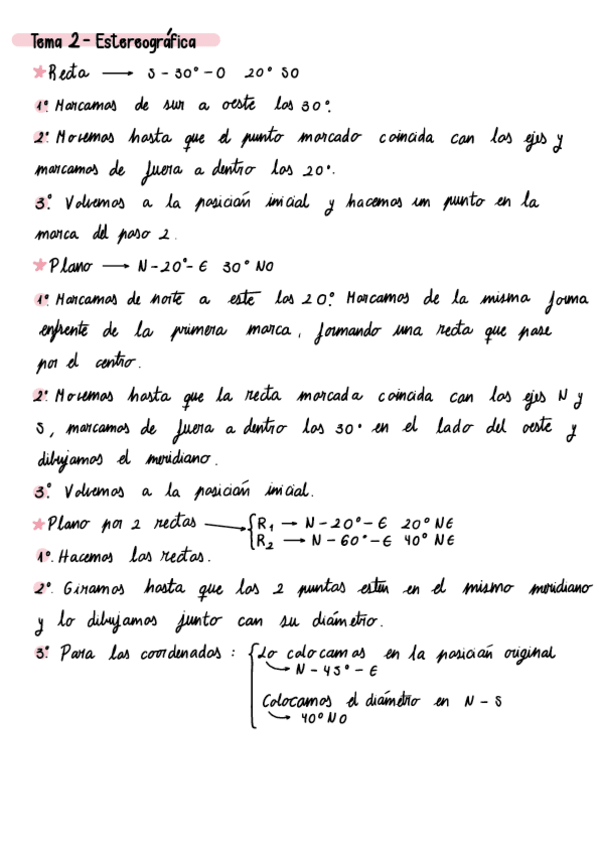 Tema 2 - Estereográfica
★ Recta → S - 30° - O 20° SO
1º. Marcamos de sur a oeste los 30°.
2º. Movemos hasta que el punto marcado coincida con los ejes y
marcamos de fuera a dentro los 20°.
3º. Volvemos a la posición inicial y hacemos un punto en la
marca del paso 2.
★ Plano → N - 20° - E 30° NO
1º. Marcamos de norte a este los 20°. Marcamos de la misma forma
enfrente de la primera marca, formando una recta que pase
por el centro.
2º. Movemos hasta que la recta marcada coincida con los ejes N y
S, marcamos de fuera a dentro los 30° en el lado del oeste y
dibujamos el meridiano.
3º. Volvemos a la posición inicial.
★ Plano por 2 rectas → { R1 → N - 20° - E 20° NE
R2 → N - 60° - E 40° NE
1º. Hacemos las rectas.
2º. Giramos hasta que los 2 puntas estén en el mismo meridiano
y lo dibujamos junto con su diámetro.
3º. Para las coordenadas : { Lo colocamos en la posición original
→ N - 45° - E
Colocamos el diámetro en N - S
→ 40° NO